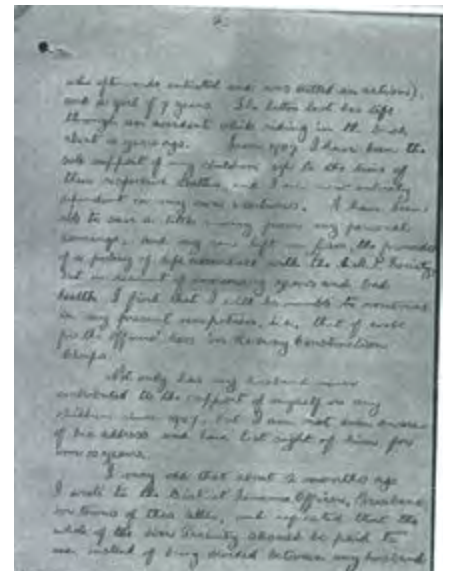 2.
who afterwards enlisted and was killed in action),
and a girl of 9 years. The latter lost her life
through an accident while riding in the bush
about 10 years ago. Since 1907 I have been the
sole support of my children up to the time of
their respective deaths, and I am now entirely
dependent on my own exertions. I have been
able to save a little money from my personal
earnings, and my son left me the proceeds
of a policy of life assurance with the A.M.P. Society,
but on account of increasing years and bad
health I find that I will be unable to continue
in my present occupation, i.e., that of cook
for the officers' mess in Railway Construction
Camps.
Not only has my husband never
contributed to the support of myself or my
children since 1907, but I am not even aware
of his address and have lost sight of him for
years.
I may add that about 2 months ago
I wrote to the District Finance Officer, Brisbane,
in terms of this letter, and requested that the
whole of the War Gratuity should be paid to
me instead of being divided between my husband